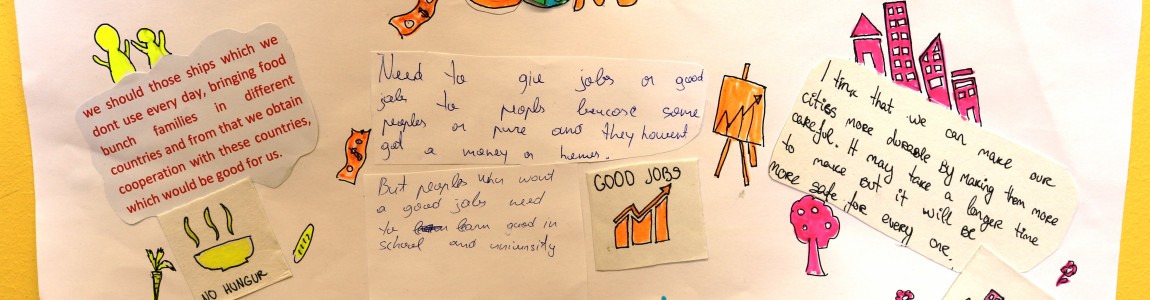 we should those ships which we
dont use every day, bringing food
bunch families in different
countries and from that we obtain
cooperation with these countries,
which would be good for us.
NO HUNGUR
Need to give jobs or good
jobs to peopls beucose some
peoples or pure and they havent
got a money or homes.
But peoples who want
a good jobs need
to learn good in
school and university
GOOD JOBS
I tink that we can make our
cities more durable by making them more
careful. It may take a longer time
to make but it will be
more safe for every one.